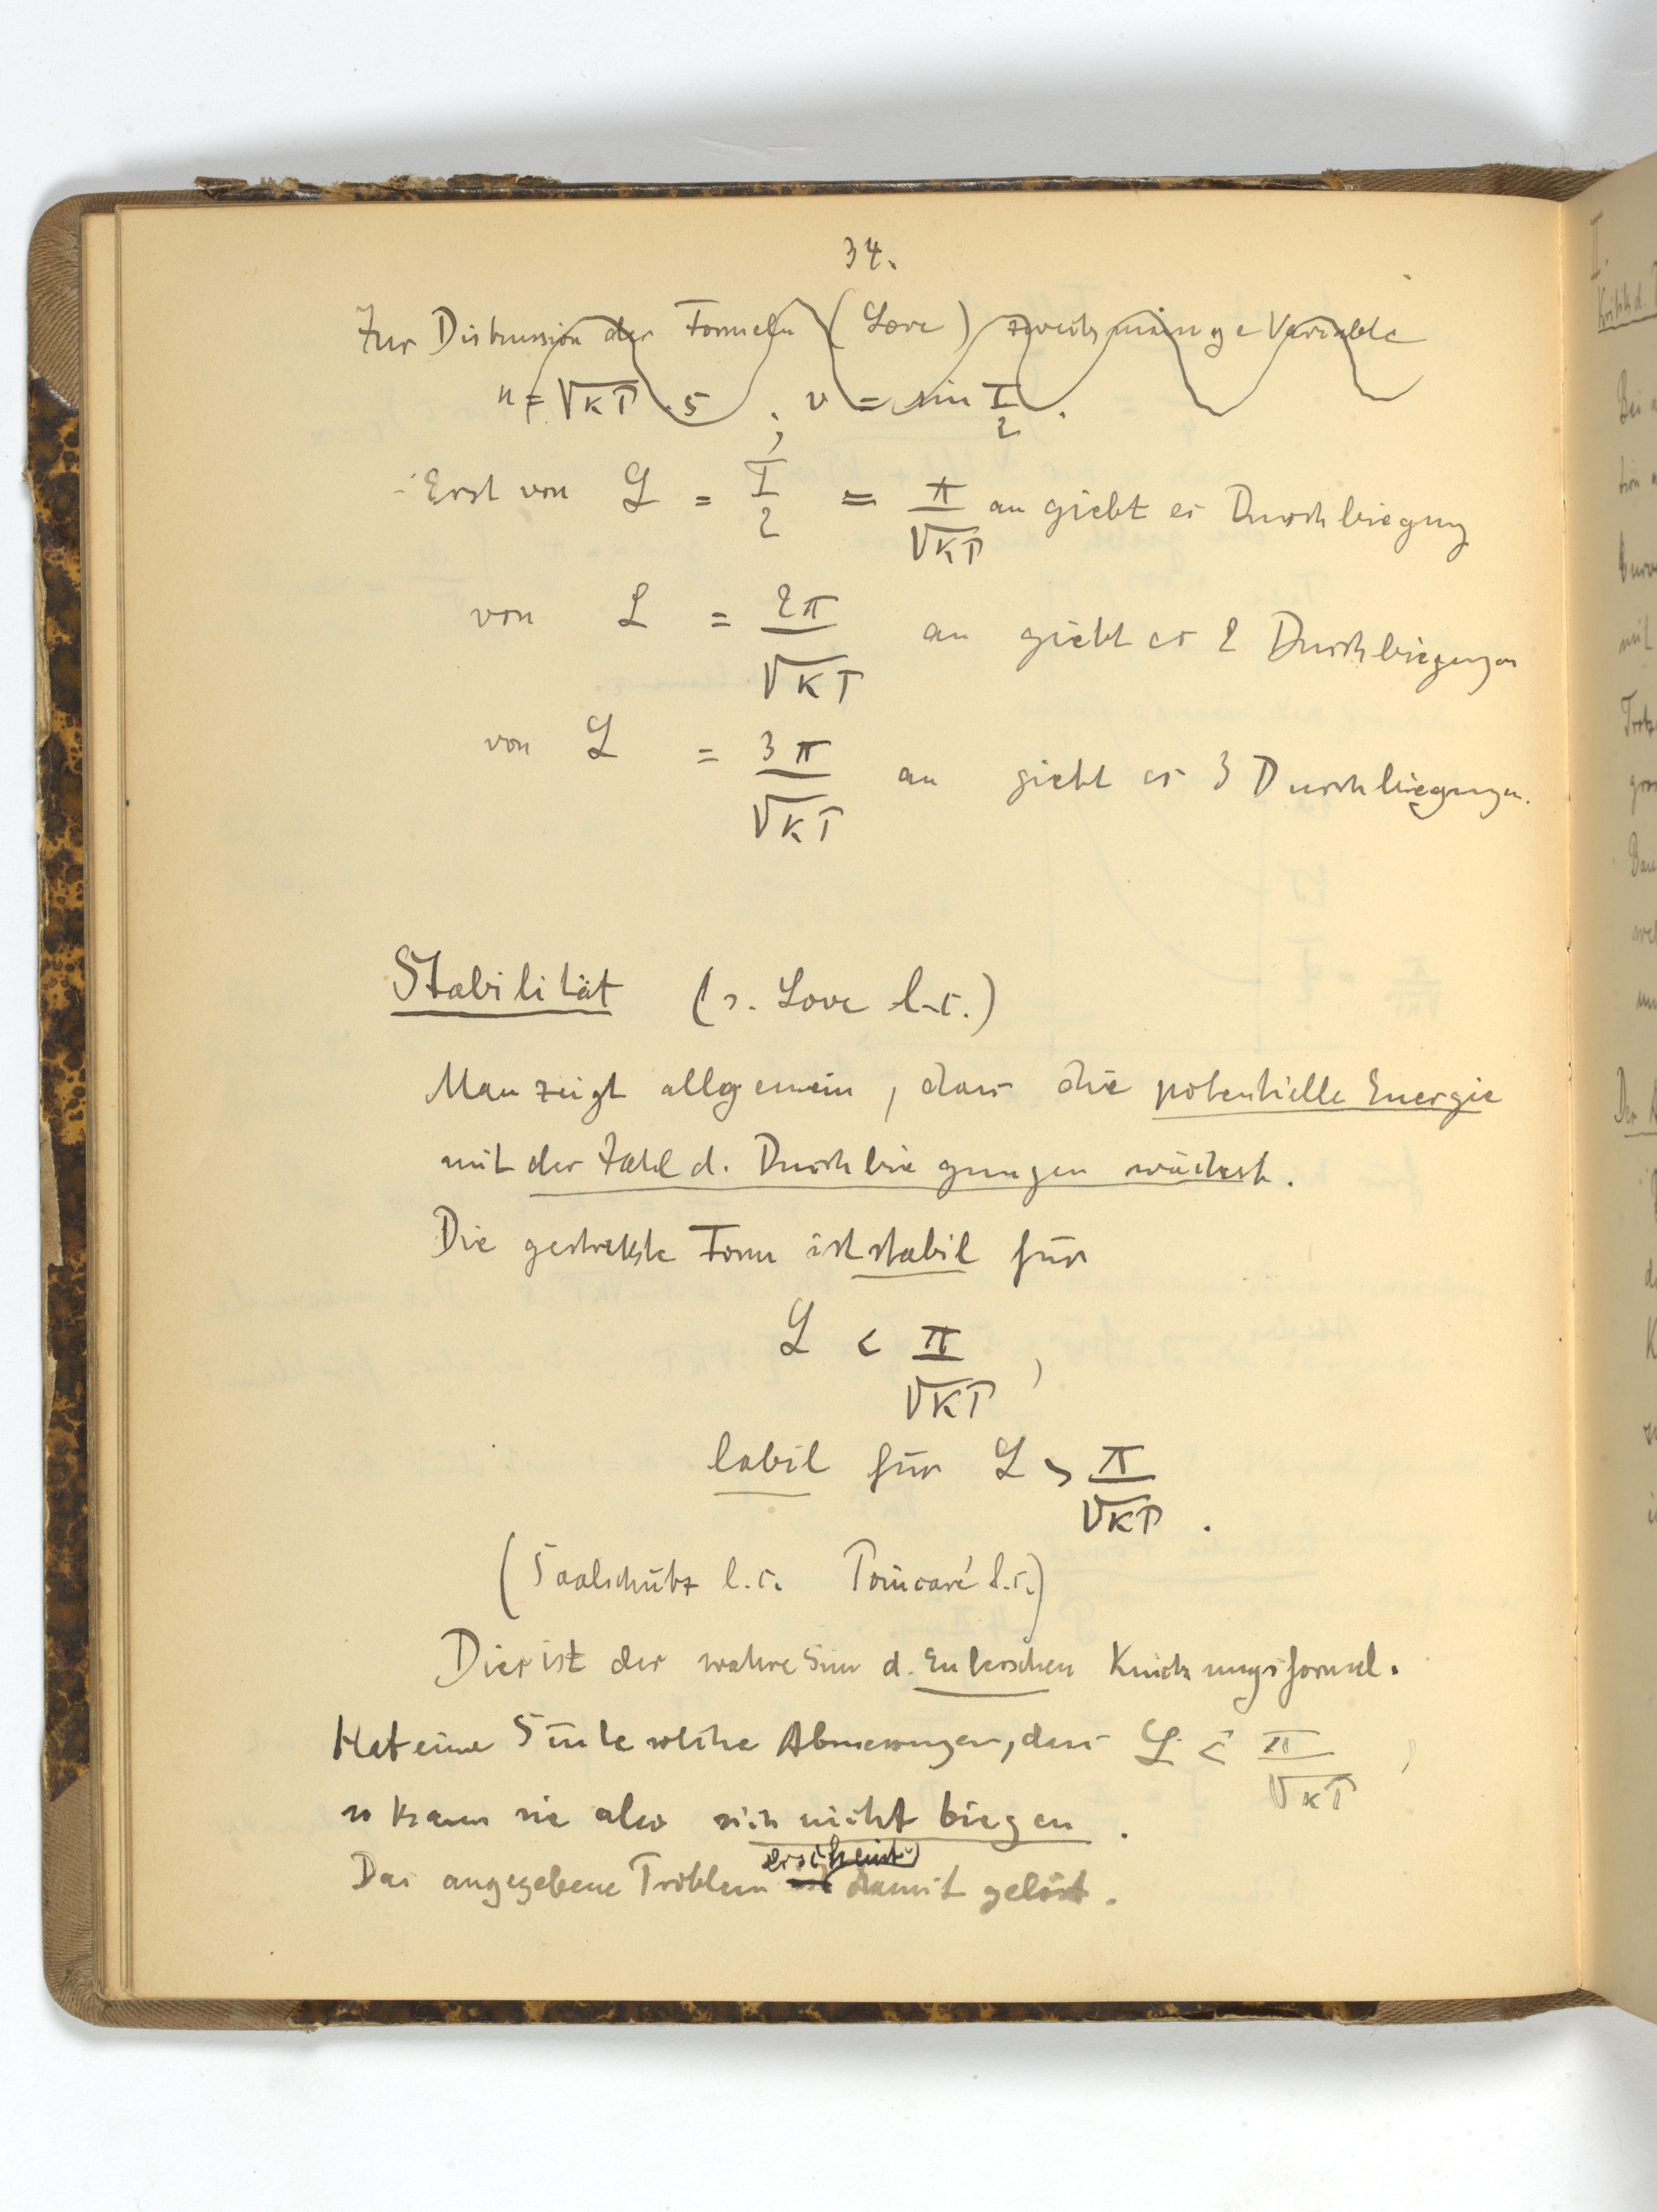 34.
Zur Diskussion der Formeln (Love) zweckmässige Variable
u = √KP · s ; v = sin I/2 .
Erst von L = I/2 = π/√KP an giebt es Durchbiegung
von L = 2π/√KP an giebt es 2 Durchbiegungen
von L = 3π/√KP an giebt es 3 Durchbiegungen.
Stabilität (s. Love l.c.)
Man zeigt allgemein, dass die potentielle Energie
mit der Zahl d. Durchbiegungen wächst.
Die gestrekkte Form ist stabil für
L < π/√KP ,
labil für L > π/√KP .
(Saalschütz l.c. Poincaré l.c.)
Dies ist der wahre Sinn d. Eulerschen Knickungsformel.
Hat eine Säule solche Abmessungen, dass L < π/√KP ,
so kann sie also sich nicht biegen .
Das angegebene Problem erscheint damit gelöst .
I.
Kritik d.
Bei
mit
Der